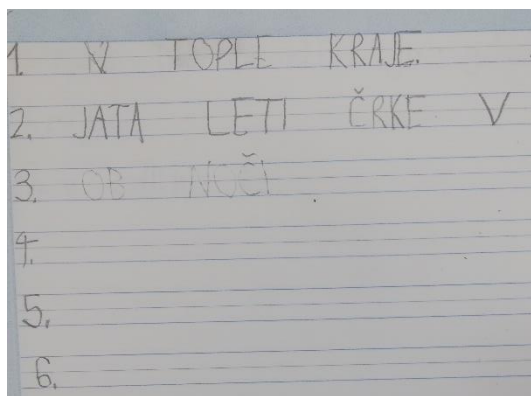 1. V TOPLE KRAJE.
2. JATA LETI ČRKE V
3. OB NOČI
4.
5.
6.